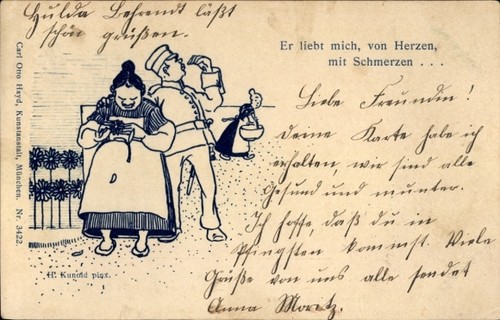 Hulda Behrendt läßt
schön grüßen.
Er liebt mich, von Herzen,
mit Schmerzen . . .
Liebe Freundin!
Deine Karte habe ich
erhalten, wir sind alle
Gesund und munter.
Ich hoffe, daß du in
Pfingsten kommst. Viele
Grüße von uns alle sendet
Anna Moritz.
Carl Otto Hayd, Kunstanstalt, München. Nr. 3422.
H. Kunold pinx.